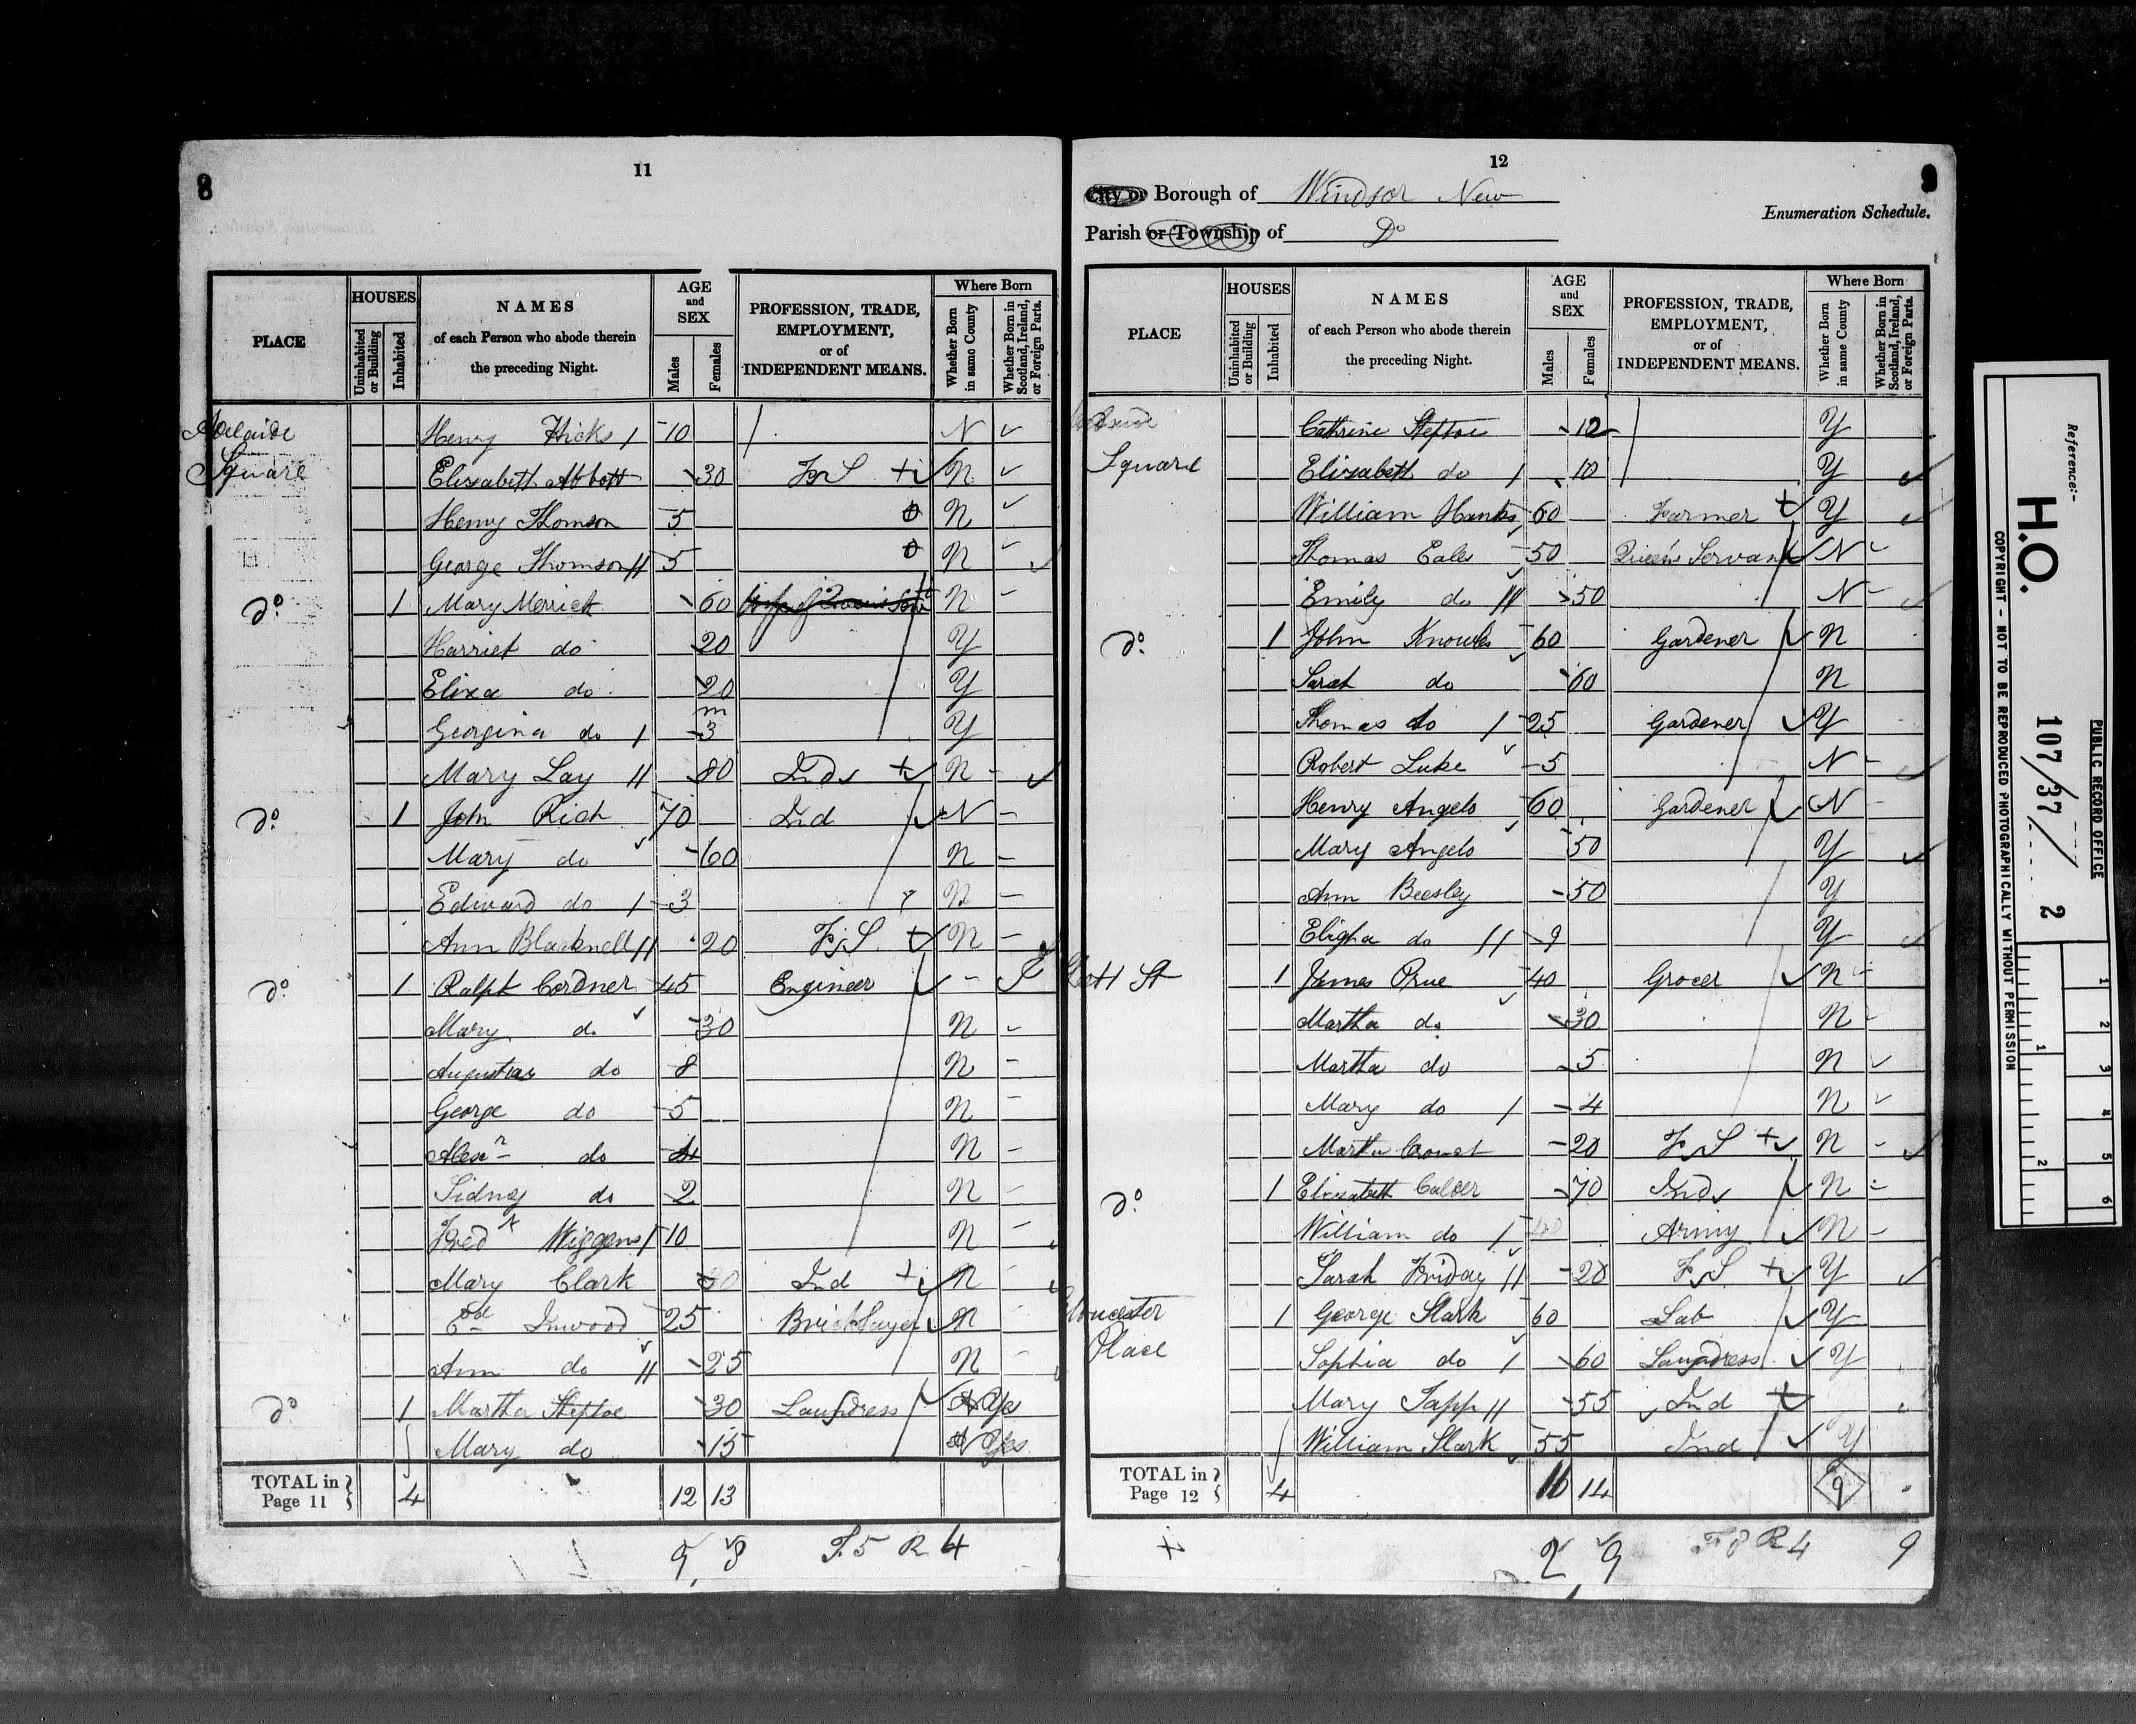 8
11
PLACE
HOUSES
Uninhabited or Building
Inhabited
NAMES
of each Person who abode therein
the preceding Night.
AGE and SEX
Males
Females
PROFESSION, TRADE,
EMPLOYMENT,
or of
INDEPENDENT MEANS.
Where Born
Whether Born in same County
Whether Born in Scotland, Ireland, or Foreign Parts.
Adelaide Henry Hicks 10 N
Square Elizabeth Abbott 30 F S N
Henry Thomson 5 N
George Thomson 5 N
do 1 Mary Merrick 60 N
Harriet do 20 Y
Eliza do 20 Y
Georgina do 3 m Y
Mary Lay 80 Ind N
do 1 John Rich 70 Ind N
Mary do 60 N
Edward do 3 N
Ann Blacknell 20 F S N
do 1 Ralph Cordner 45 Engineer
Mary do 30 N
Augustus do 8 N
George do 5 N
Alexr do N
Sidney do 2 N
Fredk Wiggens 10 N
Mary Clark Ind N
Inwood 25 Bricklayer N
Ann do 25 N
do 1 Martha Steptoe 30 Laundress Yes
Mary do 15 Yes
TOTAL in Page 11 4 12 13
9 8 F 5 R 4
12
9
City or Borough of Windsor New
Parish or Township of Do
Enumeration Schedule.
PLACE
HOUSES
Uninhabited or Building
Inhabited
NAMES
of each Person who abode therein
the preceding Night.
AGE and SEX
Males
Females
PROFESSION, TRADE,
EMPLOYMENT,
or of
INDEPENDENT MEANS.
Where Born
Whether Born in same County
Whether Born in Scotland, Ireland, or Foreign Parts.
Cathrine Steptoe 12 Y
Square Elizabeth do 10 Y
William Hanks 60 Farmer Y
Thomas Eales 50 Queens Servant N
Emily do 50 N
do 1 John Knowles 60 Gardener N
Sarah do 60 N
Thomas do 25 Gardener Y
Robert Luke 5 N
Henry Angelo 60 Gardener N
Mary Angelo 50 Y
Ann Beesley 50 Y
Eligha do 9 Y
St 1 James Prue 40 Grocer N
Martha do 30 N
Martha do 5 N
Mary do 4 N
Martha 20 F S N
do 1 Elizabeth Calder 70 Ind N
William do Army N
Sarah Friday 20 F S Y
Gloucester 1 George Slark 60 Lab Y
Place Sophia do 60 Laundress Y
Mary Tapp 55 Ind
William Slark 55 Ind Y
TOTAL in Page 12 4 14 9
2 9 F 8 R 4 9
Reference:-
H.O. 107/37/2
PUBLIC RECORD OFFICE
COPYRIGHT - NOT TO BE REPRODUCED PHOTOGRAPHICALLY WITHOUT PERMISSION
1 2 3 4 5 6
1 2